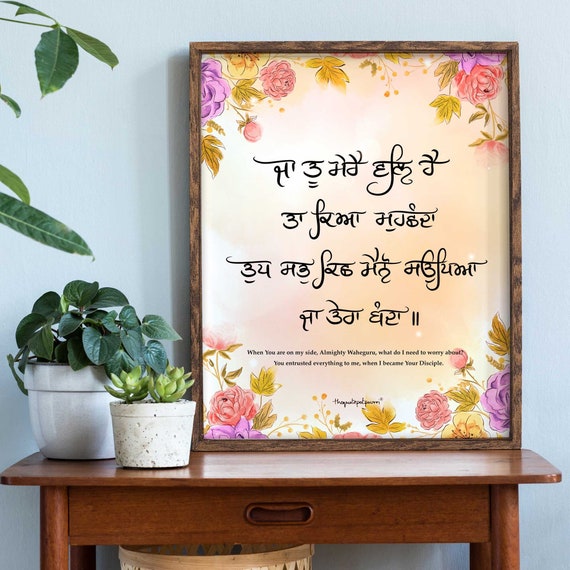 ਜਾ ਤੂ ਮੇਰੈ ਵਲਿ ਹੈ
ਤਾ ਕਿਆ ਮੁਹਛੰਦਾ
ਤੁਧ ਸਭੁ ਕਿਛ ਮੈਨੋ ਸਉਪਿਆ
ਜਾ ਤੇਰਾ ਬੰਦਾ ॥
When You are on my side, Almighty Waheguru, what do I need to worry about?
You entrusted everything to me, when I became Your Disciple.